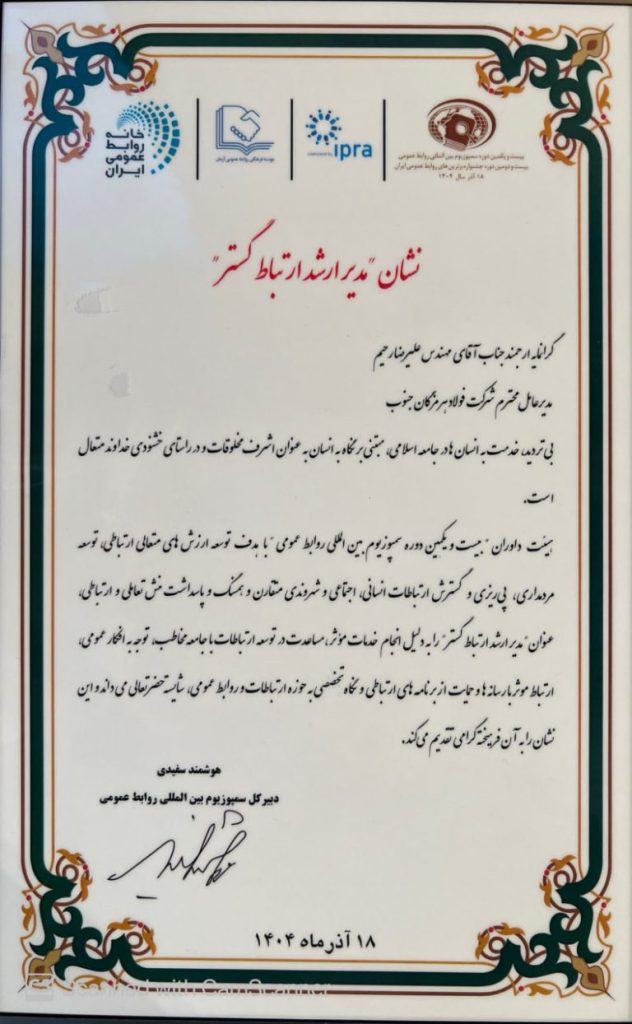 خانه
روابط
عمومی
ایران
موسسه فرهنگی روابط عمومی آرمان
ipra
بیست و یکمین دوره سمپوزیوم بین المللی روابط عمومی
بیست و دومین دوره جشنواره برترین های روابط عمومی ایران
۱۸ آذر سال ۱۴۰۴
نشان "مدیر ارشد ارتباط گستر"
گرانمایه ارجمند جناب آقای مهندس علیرضا رحیم
مدیرعامل محترم شرکت فولاد هرمزگان جنوب
بی تردید، خدمت به انسان ها در جامعه اسلامی، مبتنی بر نگاه به انسان به عنوان اشرف مخلوقات و در راستای خشنودی خداوند متعال
است.
هیئت داوران "بیست و یکمین دوره سمپوزیوم بین المللی روابط عمومی" با هدف توسعه ارزش های متعالی ارتباطی، توسعه
مردمداری، پی ریزی و گسترش ارتباطات انسانی، اجتماعی و شهروندی متقارن و همسنگ و پاسداشت منش تعاملی و ارتباطی،
عنوان "مدیر ارشد ارتباط گستر" را به دلیل انجام خدمات مؤثر، مساعدت در توسعه ارتباطات با جامعه مخاطب، توجه به افکار عمومی،
ارتباط موثر با رسانه ها و حمایت از برنامه های ارتباطی و نگاه تخصصی به حوزه ارتباطات و روابط عمومی، شایسته حضرتعالی می داند و این
نشان را به آن فرهیخته گرامی تقدیم می کند.
هوشمند سفیدی
دبیر کل سمپوزیوم بین المللی روابط عمومی
۱۸ آذر ماه ۱۴۰۴
Scanned with CamScanner